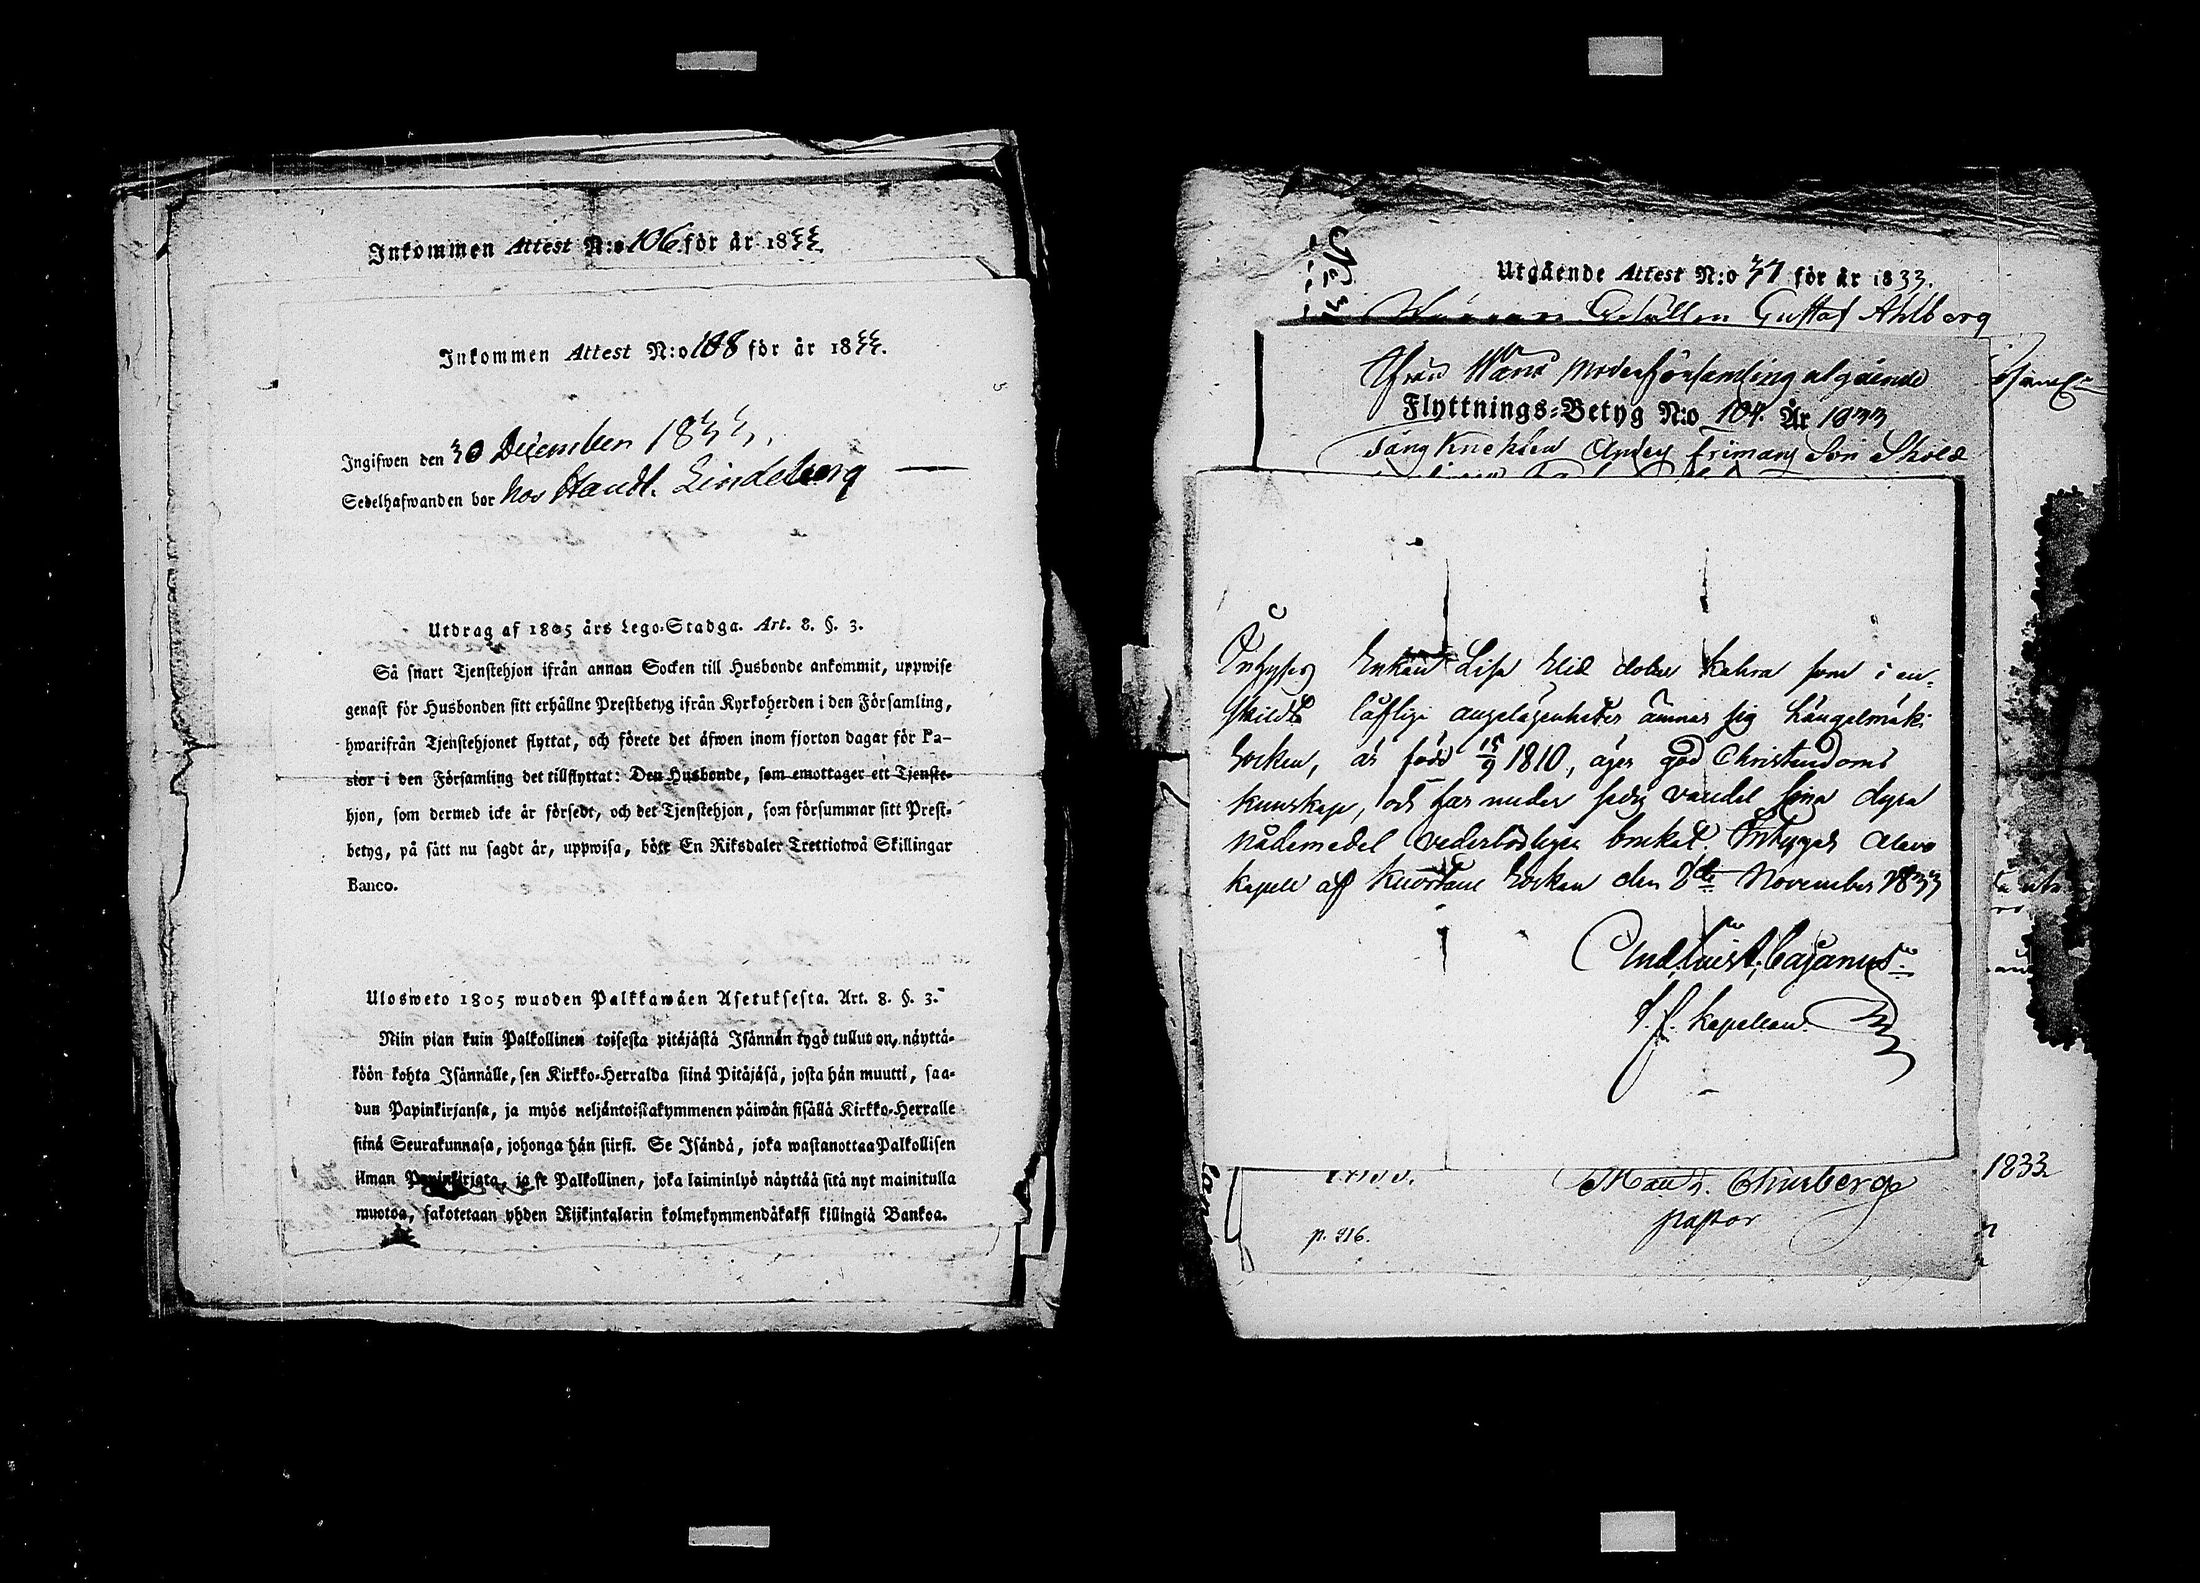 Inkommen Attest N:o 106 för år 1833
Inkommen Attest N:o 108 för år 1833.
Ingifwen den 30 December 1833.
Sedelhafwanden bor hos Handl. Lindeberg
Utdrag af 1805 års Lego-Stadga. Art. 8. §. 3.
Så snart Tjenstehjon ifrån annan Socken till Husbonde ankommit, uppwise
genast för Husbonden sitt erhållne Prestbetyg ifrån Kyrkoherden i den Församling,
hwarifrån Tjenstehjonet flyttat, och förete det äfwen inom fjorton dagar för Pa-
stor i den Församling det tillflyttat: Den Husbonde, som emottager ett Tjenste-
hjon, som dermed icke är försedt, och det Tjenstehjon, som försummar sitt Prest-
betyg, på sätt nu sagdt är, uppwisa, böte En Riksdaler Trettiotwå Skillingar
Banco.
Ulosweto 1805 wuoden Palkkawäen Asetuksesta. Art. 8. §. 3.
Niin pian kuin Palkollinen toisesta pitäjästä Isännän tygö tullut on, näyttä-
köön kohta Isännälle, sen Kirkko-Herralda siinä Pitäjäsä, josta hän muutti, saa-
dun Papinkirjansa, ja myös neljäntoistakymmenen päiwän sisällä Kirkko-Herralle
siinä Seurakunnasa, johonga hän siirsi. Se Isändä, joka wastanottaa Palkollisen
ilman Papinkirjata, ja se Palkollinen, joka laiminlyö näyttää sitä nyt mainitulla
muotoa, sakotetaan yhden Rijkintalarin kolmekymmendäkaksi killingiä Bankoa.
Utgående Attest N:o 37 för år 1833.
Gesällen Gustaf Ahlberg
Ifrån Wånå Moderförsamling utgående
Flyttnings-Betyg N:o 104. År 1833
Anders Frimans Son Sköld
Intygas Enkan Lisa Elis doter Kahra som i en-
skildta låflige angelägenheter ämnar sig Längelmäki
Socken, är född 15/9 1810, äger god Christendoms
kunskap, och har under fredig vandel sina dyra
nådemedel vederbörligen brukat. Intygas Alavo
kapell af Kuortane Socken den 8de November 1833
Cajanus
V. f. Kapellan.
1833
Churberg
pastor
p. 216.